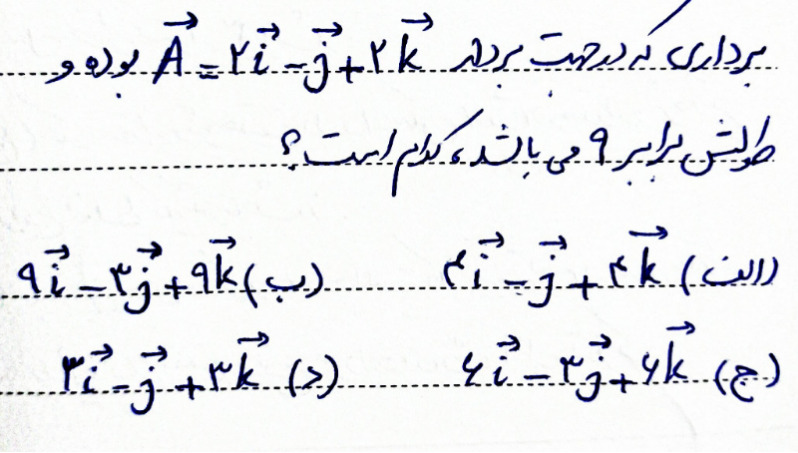 برداری که در جهت بردار A⃗ = ۲i⃗ - j⃗ + ۲k⃗ بوده و
طولش برابر ۹ می باشد، کدام است؟
الف) ۴i⃗ - j⃗ + ۴k⃗ ب) ۹i⃗ - ۳j⃗ + ۹k⃗
ج) ۶i⃗ - ۳j⃗ + ۶k⃗ د) ۳i⃗ - j⃗ + ۳k⃗